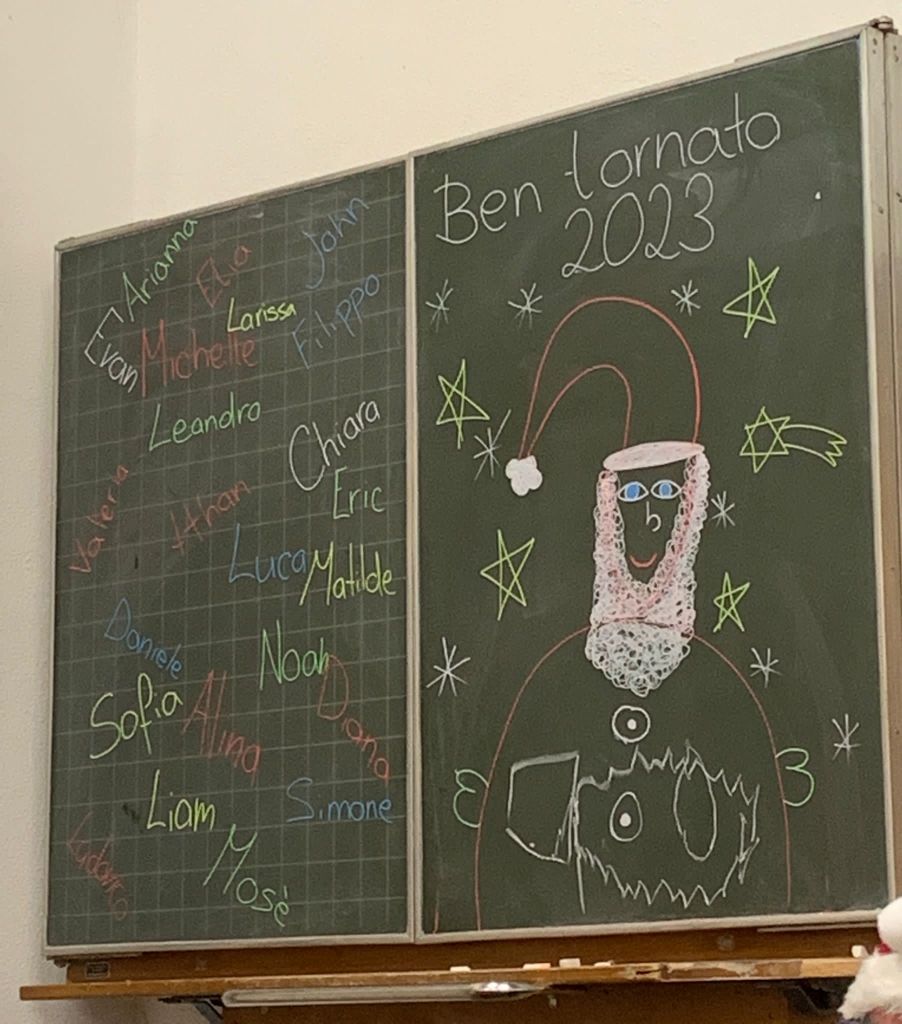 Arianna
Elia
John
Evan
Larissa
Michelle
Filippo
Leandro
Chiara
Valeria
Ithan
Eric
Luca
Matilde
Daniele
Noah
Sofia
Alina
Diana
Liam
Simone
Ludovico
Mosè
Ben tornato
2023